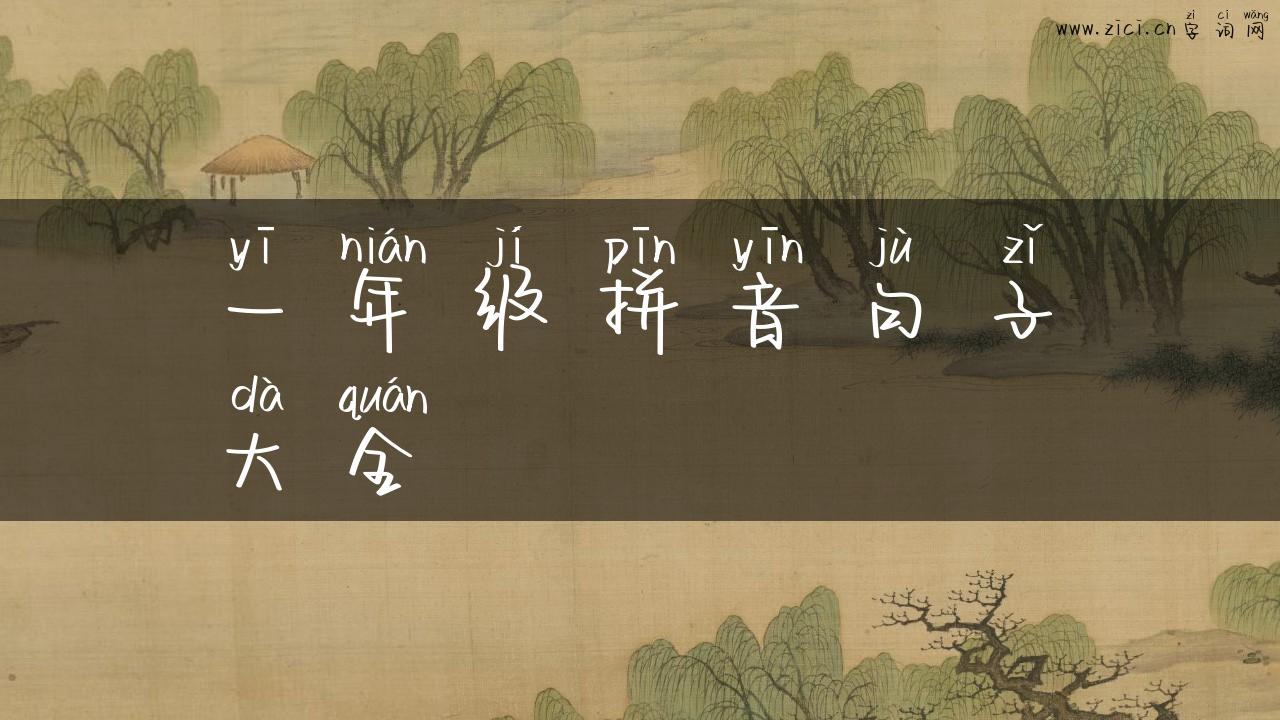 zì cí wǎng
www.zici.cn 字词网
yī nián jí pīn yīn jù zǐ
一年级拼音句子
dà quán
大全